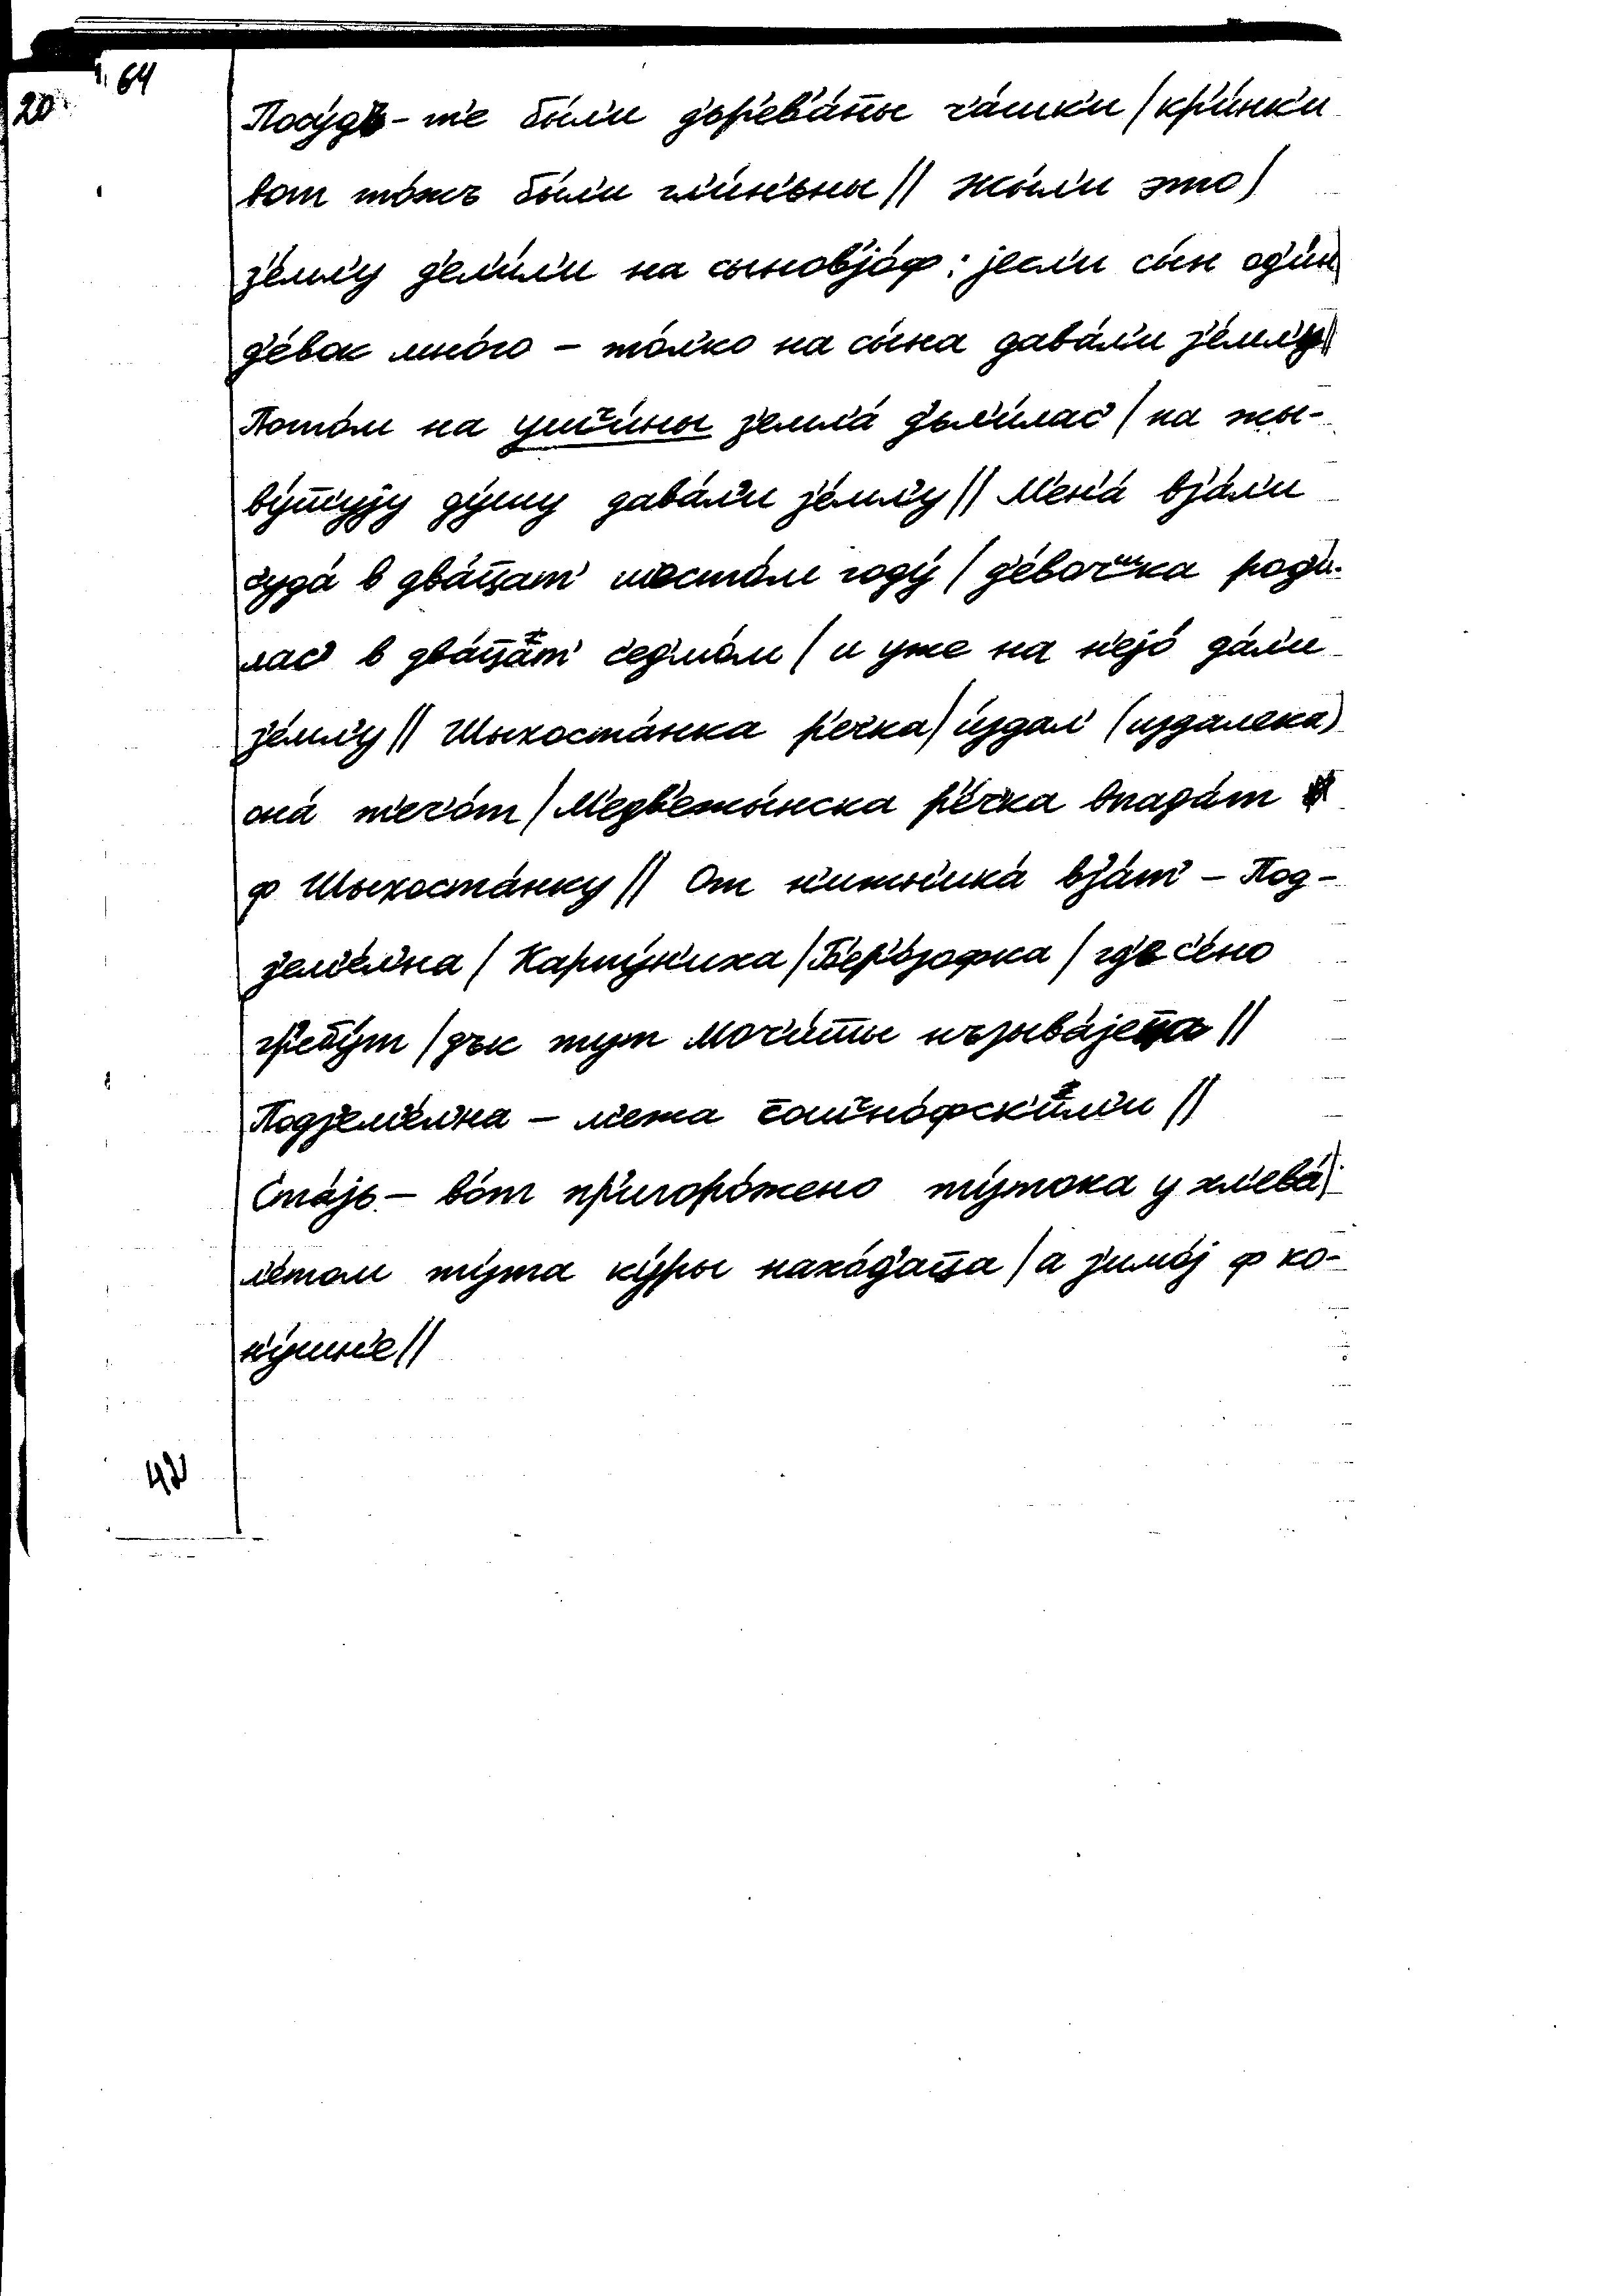 64
20
Посу́дъ-т'е бы́л'и дър'ев'а́н̄ы ч'а́шк'и / кр'и́нк'и
вот то́жъ бы́л'и гл'и́н'ьны // Жы́л'и это /
з'е́мл'у д'ел'и́л'и на сыновjо́ф: jесл'и сы́н од'и́н /
д'е́вок мно́го – то́л'ко на сы́на дава́л'и з'е́мл'у //
Пото́м на уш'ч'и́ны з'емл'а́ дъл'и́лас' / на жы-
ву́ш̄'уjу ду́шу дава́л'и з'е́мл'у // М'ен'а́ вз'а́л'и
с'уда́ в два́ц̄ат' шосто́м году́ / д'е́воч'ка род'и́-
лас' в два́ц̄ат' с'ед'мо́м / и уже на н'еjо́ да́л'и
з'е́мл'у // Шыхоста́нка р'ечка / и́здал' (издалека)
она́ т'еч'о́т / М'едв'ежы́нска р'е́чка впада́т
ф Шыхоста́нку // От н'ижн'ика́ вз'а́т' – Под-
з'ем'е́л'на / Карпу́н'иха / Б'ер'о́зофка / гд'е с'е́но
гр'ебу́т / дък тут Моч'и́ш̄ы нъзыва́jец̄а //
Подз'ем'е́л'на – м'ежа
Ста́jь – во́т пр'игоро́жено ту́тока у хл'ева́ /
л'е́том ту́та ку́ры нахо́д'ац̄а / а з'имо́j ф ко-
н'у́шн'е //
42